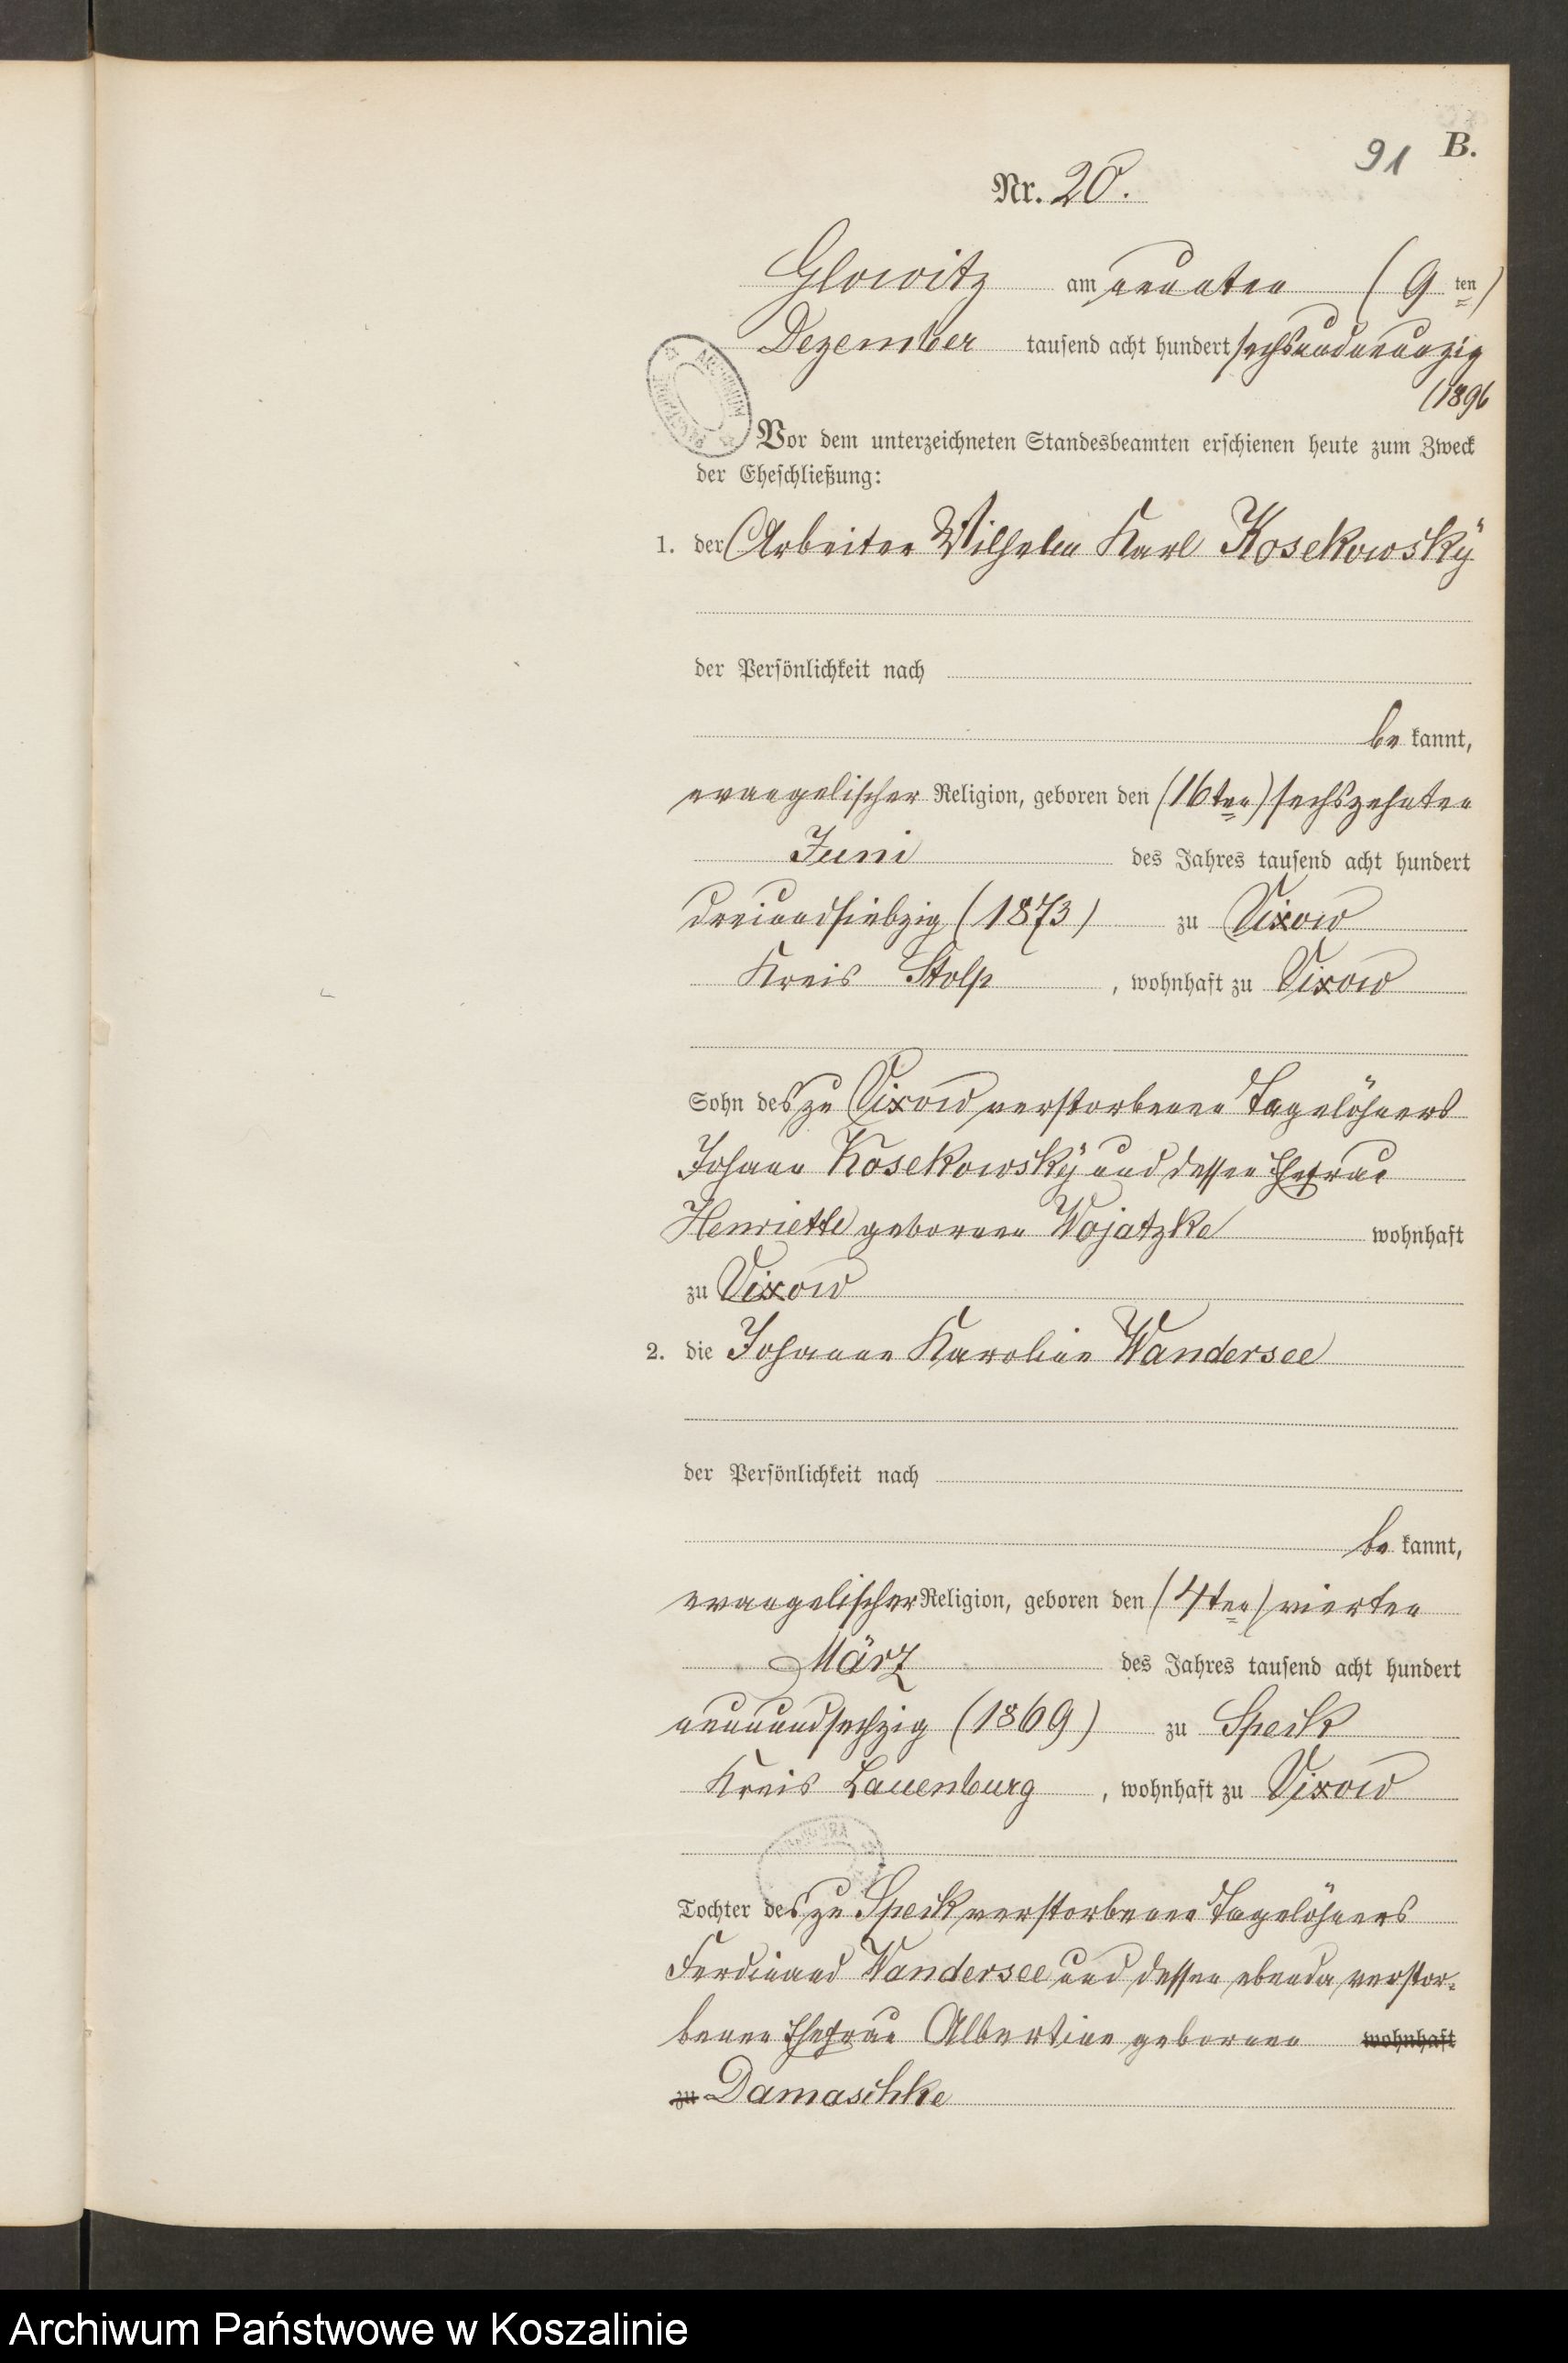 91 B.
Nr. 20.
Glowitz am neunten (9 ten)
Dezember tausend acht hundert sechsundneunzig
(1896
Vor dem unterzeichneten Standesbeamten erschienen heute zum Zweck
der Eheschließung:
1. der Arbeiter Wilhelm Karl Kosekowsky
der Persönlichkeit nach
be kannt,
evangelischer Religion, geboren den (16ten) sechszehnten
Juni des Jahres tausend acht hundert
dreiundsiebzig (1873) zu Vixow
Kreis Stolp, wohnhaft zu Vixow
Sohn des zu Vixow verstorbenen Tagelöhners
Johann Kosekowsky und dessen Ehefrau
Henriette geborenen Wojatzke wohnhaft
zu Vixow
2. die Johanne Karoline Wandersee
der Persönlichkeit nach
be kannt,
evangelischer Religion, geboren den (4ten) vierten
März des Jahres tausend acht hundert
neunundsechzig (1869) zu Speck
Kreis Lauenburg, wohnhaft zu Vixow
Tochter des zu Speck verstorbenen Tagelöhners
Ferdinand Wandersee und dessen ebenda verstor-
benen Ehefrau Albertine geborenen wohnhaft
zu Damaschke
Archiwum Państwowe w Koszalinie